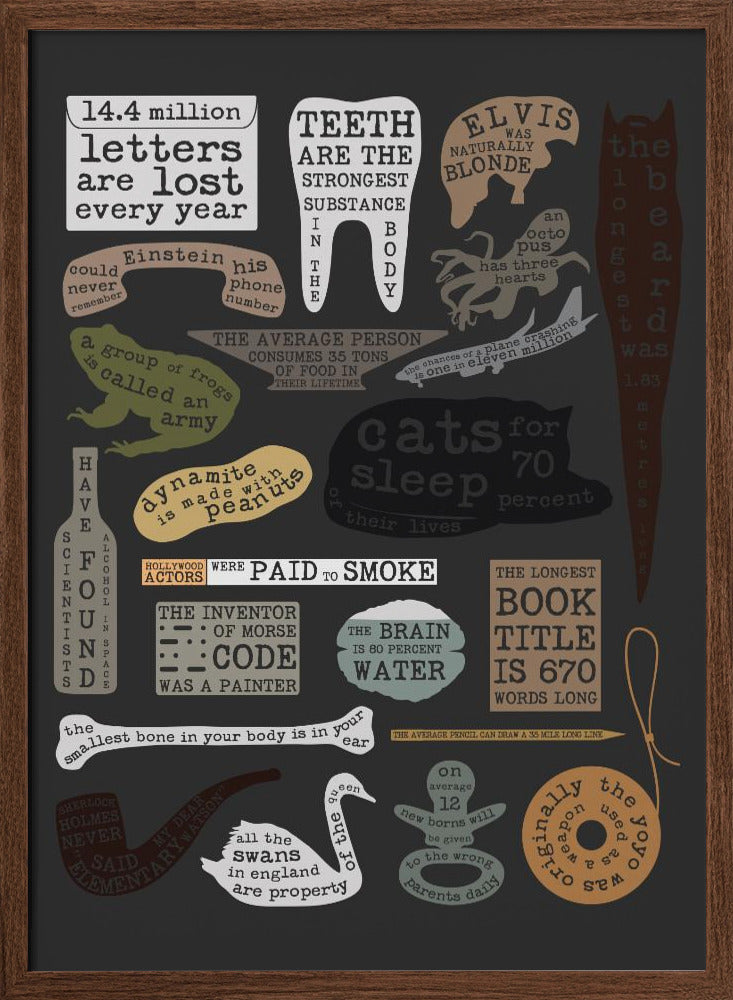 14.4 million
letters
are lost
every year
TEETH
ARE THE
STRONGEST
SUBSTANCE
IN THE
BODY
ELVIS
WAS
NATURALLY
BLONDE
the
longest
beard
was
1.83
metres long
Einstein
could never remember
his phone number
an
octo
pus
has three
hearts
a group of frogs
is called an
army
THE AVERAGE PERSON
CONSUMES 35 TONS
OF FOOD IN
THEIR LIFETIME
the chances of a plane crashing
is one in eleven million
cats for
sleep 70
percent
of their lives
dynamite
is made with
peanuts
SCIENTISTS
HAVE FOUND
ALCOHOL IN SPACE
HOLLYWOOD
ACTORS
WERE PAID TO SMOKE
THE INVENTOR
OF MORSE
CODE
WAS A PAINTER
THE BRAIN
IS 80 PERCENT
WATER
THE LONGEST
BOOK
TITLE
IS 670
WORDS LONG
the
smallest bone in your body is in your
ear
THE AVERAGE PENCIL CAN DRAW A 35 MILE LONG LINE
SHERLOCK
HOLMES
NEVER
SAID
"ELEMENTARY
MY DEAR
WATSON"
all the
swans
in england
are property
of the queen
on
average
12
new borns will
be given
to the wrong
parents daily
the yoyo was originally
used as a weapon